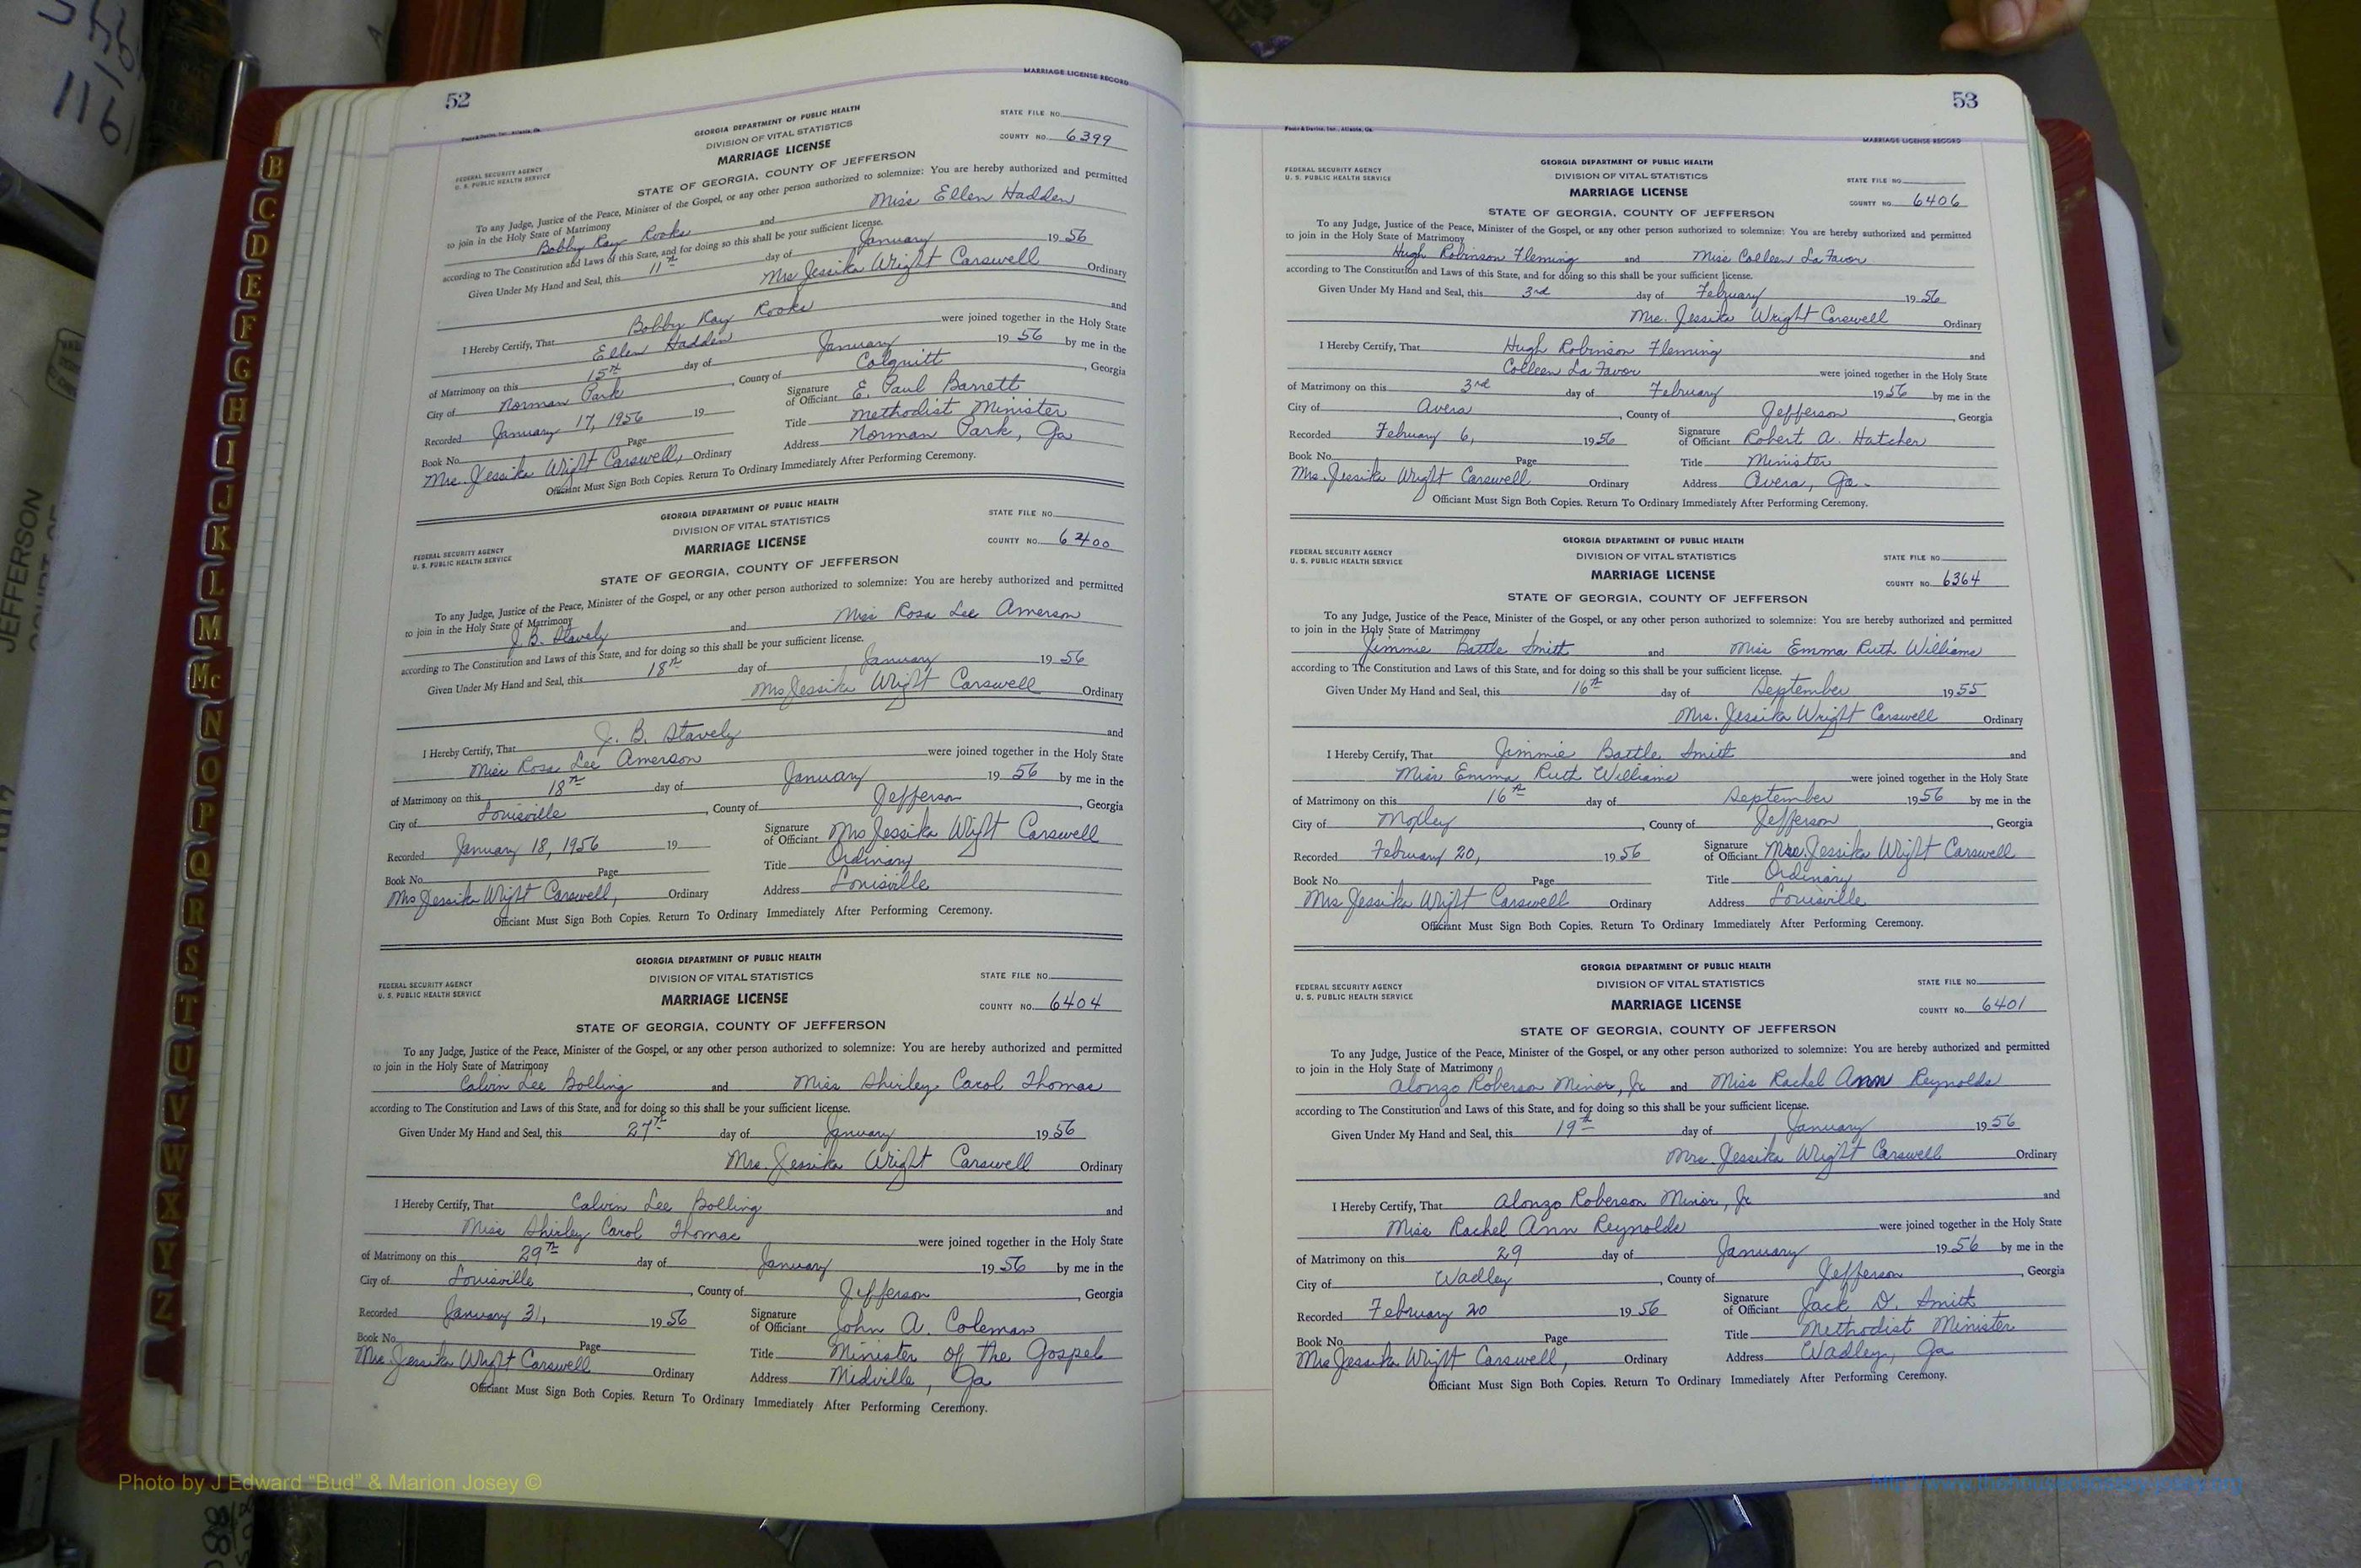 52
MARRIAGE LICENSE RECORD
Foote & Davies, Inc., Atlanta, Ga.
GEORGIA DEPARTMENT OF PUBLIC HEALTH
DIVISION OF VITAL STATISTICS
MARRIAGE LICENSE
STATE FILE NO.
COUNTY NO. 6399
FEDERAL SECURITY AGENCY
U. S. PUBLIC HEALTH SERVICE
STATE OF GEORGIA, COUNTY OF JEFFERSON
To any Judge, Justice of the Peace, Minister of the Gospel, or any other person authorized to solemnize: You are hereby authorized and permitted
to join in the Holy State of Matrimony
Bobby Ray Rooks and Miss Ellen Hadden
according to The Constitution and Laws of this State, and for doing so this shall be your sufficient license.
Given Under My Hand and Seal, this 11th day of January 1956
Mrs Jessika Wright Carswell Ordinary
I Hereby Certify, That Bobby Ray Rooks and
Ellen Hadden were joined together in the Holy State
of Matrimony on this 15th day of January 1956 by me in the
City of Norman Park, County of Colquitt, Georgia
Recorded January 17, 1956 19
Signature of Officiant E. Paul Barrett
Book No. Page
Title Methodist Minister
Mrs. Jessika Wright Carswell, Ordinary
Address Norman Park, Ga
Officiant Must Sign Both Copies. Return To Ordinary Immediately After Performing Ceremony.
GEORGIA DEPARTMENT OF PUBLIC HEALTH
DIVISION OF VITAL STATISTICS
MARRIAGE LICENSE
STATE FILE NO.
COUNTY NO. 6400
FEDERAL SECURITY AGENCY
U. S. PUBLIC HEALTH SERVICE
STATE OF GEORGIA, COUNTY OF JEFFERSON
To any Judge, Justice of the Peace, Minister of the Gospel, or any other person authorized to solemnize: You are hereby authorized and permitted
to join in the Holy State of Matrimony
J. B. Stavely and Miss Rosa Lee Amerson
according to The Constitution and Laws of this State, and for doing so this shall be your sufficient license.
Given Under My Hand and Seal, this 18th day of January 1956
Mrs Jessika Wright Carswell Ordinary
I Hereby Certify, That J. B. Stavely and
Miss Rosa Lee Amerson were joined together in the Holy State
of Matrimony on this 18th day of January 1956 by me in the
City of Louisville, County of Jefferson, Georgia
Recorded January 18, 1956 19
Signature of Officiant Mrs Jessika Wright Carswell
Book No. Page
Title Ordinary
Mrs Jessika Wright Carswell, Ordinary
Address Louisville
Officiant Must Sign Both Copies. Return To Ordinary Immediately After Performing Ceremony.
GEORGIA DEPARTMENT OF PUBLIC HEALTH
DIVISION OF VITAL STATISTICS
MARRIAGE LICENSE
STATE FILE NO.
COUNTY NO. 6404
FEDERAL SECURITY AGENCY
U. S. PUBLIC HEALTH SERVICE
STATE OF GEORGIA, COUNTY OF JEFFERSON
To any Judge, Justice of the Peace, Minister of the Gospel, or any other person authorized to solemnize: You are hereby authorized and permitted
to join in the Holy State of Matrimony
Calvin Lee Bolling and Miss Shirley Carol Thomas
according to The Constitution and Laws of this State, and for doing so this shall be your sufficient license.
Given Under My Hand and Seal, this 27th day of January 1956
Mrs. Jessika Wright Carswell Ordinary
I Hereby Certify, That Calvin Lee Bolling and
Miss Shirley Carol Thomas were joined together in the Holy State
of Matrimony on this 29th day of January 1956 by me in the
City of Louisville, County of Jefferson, Georgia
Recorded January 31, 1956
Signature of Officiant John A. Coleman
Book No. Page
Title Minister of the Gospel
Mrs. Jessika Wright Carswell Ordinary
Address Midville, Ga
Officiant Must Sign Both Copies. Return To Ordinary Immediately After Performing Ceremony.
53
Foote & Davies, Inc., Atlanta, Ga.
MARRIAGE LICENSE RECORD
GEORGIA DEPARTMENT OF PUBLIC HEALTH
DIVISION OF VITAL STATISTICS
MARRIAGE LICENSE
STATE FILE NO.
COUNTY NO. 6406
FEDERAL SECURITY AGENCY
U. S. PUBLIC HEALTH SERVICE
STATE OF GEORGIA, COUNTY OF JEFFERSON
To any Judge, Justice of the Peace, Minister of the Gospel, or any other person authorized to solemnize: You are hereby authorized and permitted
to join in the Holy State of Matrimony
Hugh Robinson Fleming and Miss Colleen La Favor
according to The Constitution and Laws of this State, and for doing so this shall be your sufficient license.
Given Under My Hand and Seal, this 3rd day of February 1956
Mrs. Jessika Wright Carswell Ordinary
I Hereby Certify, That Hugh Robinson Fleming and
Colleen La Favor were joined together in the Holy State
of Matrimony on this 3rd day of February 1956 by me in the
City of Avera, County of Jefferson, Georgia
Recorded February 6, 1956
Signature of Officiant Robert A. Hatcher
Book No. Page
Title Minister
Mrs. Jessika Wright Carswell Ordinary
Address Avera, Ga.
Officiant Must Sign Both Copies. Return To Ordinary Immediately After Performing Ceremony.
GEORGIA DEPARTMENT OF PUBLIC HEALTH
DIVISION OF VITAL STATISTICS
MARRIAGE LICENSE
STATE FILE NO.
COUNTY NO. 6364
FEDERAL SECURITY AGENCY
U. S. PUBLIC HEALTH SERVICE
STATE OF GEORGIA, COUNTY OF JEFFERSON
To any Judge, Justice of the Peace, Minister of the Gospel, or any other person authorized to solemnize: You are hereby authorized and permitted
to join in the Holy State of Matrimony
Jimmie Battle Smith and Miss Emma Ruth Williams
according to The Constitution and Laws of this State, and for doing so this shall be your sufficient license.
Given Under My Hand and Seal, this 16th day of September 1955
Mrs. Jessika Wright Carswell Ordinary
I Hereby Certify, That Jimmie Battle Smith and
Miss Emma Ruth Williams were joined together in the Holy State
of Matrimony on this 16th day of September 1956 by me in the
City of Moxley, County of Jefferson, Georgia
Recorded February 20, 1956
Signature of Officiant Mrs. Jessika Wright Carswell
Book No. Page
Title Ordinary
Mrs Jessika Wright Carswell Ordinary
Address Louisville
Officiant Must Sign Both Copies. Return To Ordinary Immediately After Performing Ceremony.
GEORGIA DEPARTMENT OF PUBLIC HEALTH
DIVISION OF VITAL STATISTICS
MARRIAGE LICENSE
STATE FILE NO.
COUNTY NO. 6401
FEDERAL SECURITY AGENCY
U. S. PUBLIC HEALTH SERVICE
STATE OF GEORGIA, COUNTY OF JEFFERSON
To any Judge, Justice of the Peace, Minister of the Gospel, or any other person authorized to solemnize: You are hereby authorized and permitted
to join in the Holy State of Matrimony
Alonzo Roberson Minor, Jr and Miss Rachel Ann Reynolds
according to The Constitution and Laws of this State, and for doing so this shall be your sufficient license.
Given Under My Hand and Seal, this 19th day of January 1956
Mrs. Jessika Wright Carswell Ordinary
I Hereby Certify, That Alonzo Roberson Minor, Jr and
Miss Rachel Ann Reynolds were joined together in the Holy State
of Matrimony on this 29 day of January 1956 by me in the
City of Wadley, County of Jefferson, Georgia
Recorded February 20 1956
Signature of Officiant Jack D. Smith
Book No. Page
Title Methodist Minister
Mrs Jessika Wright Carswell, Ordinary
Address Wadley, Ga
Officiant Must Sign Both Copies. Return To Ordinary Immediately After Performing Ceremony.
B
C
D
E
F
G
H
I
J
K
L
M
Mc
N
O
P
Q
R
S
T
U
V
W
X
Y
Z
JEFFERSON
Photo by J Edward “Bud” & Marion Josey ©